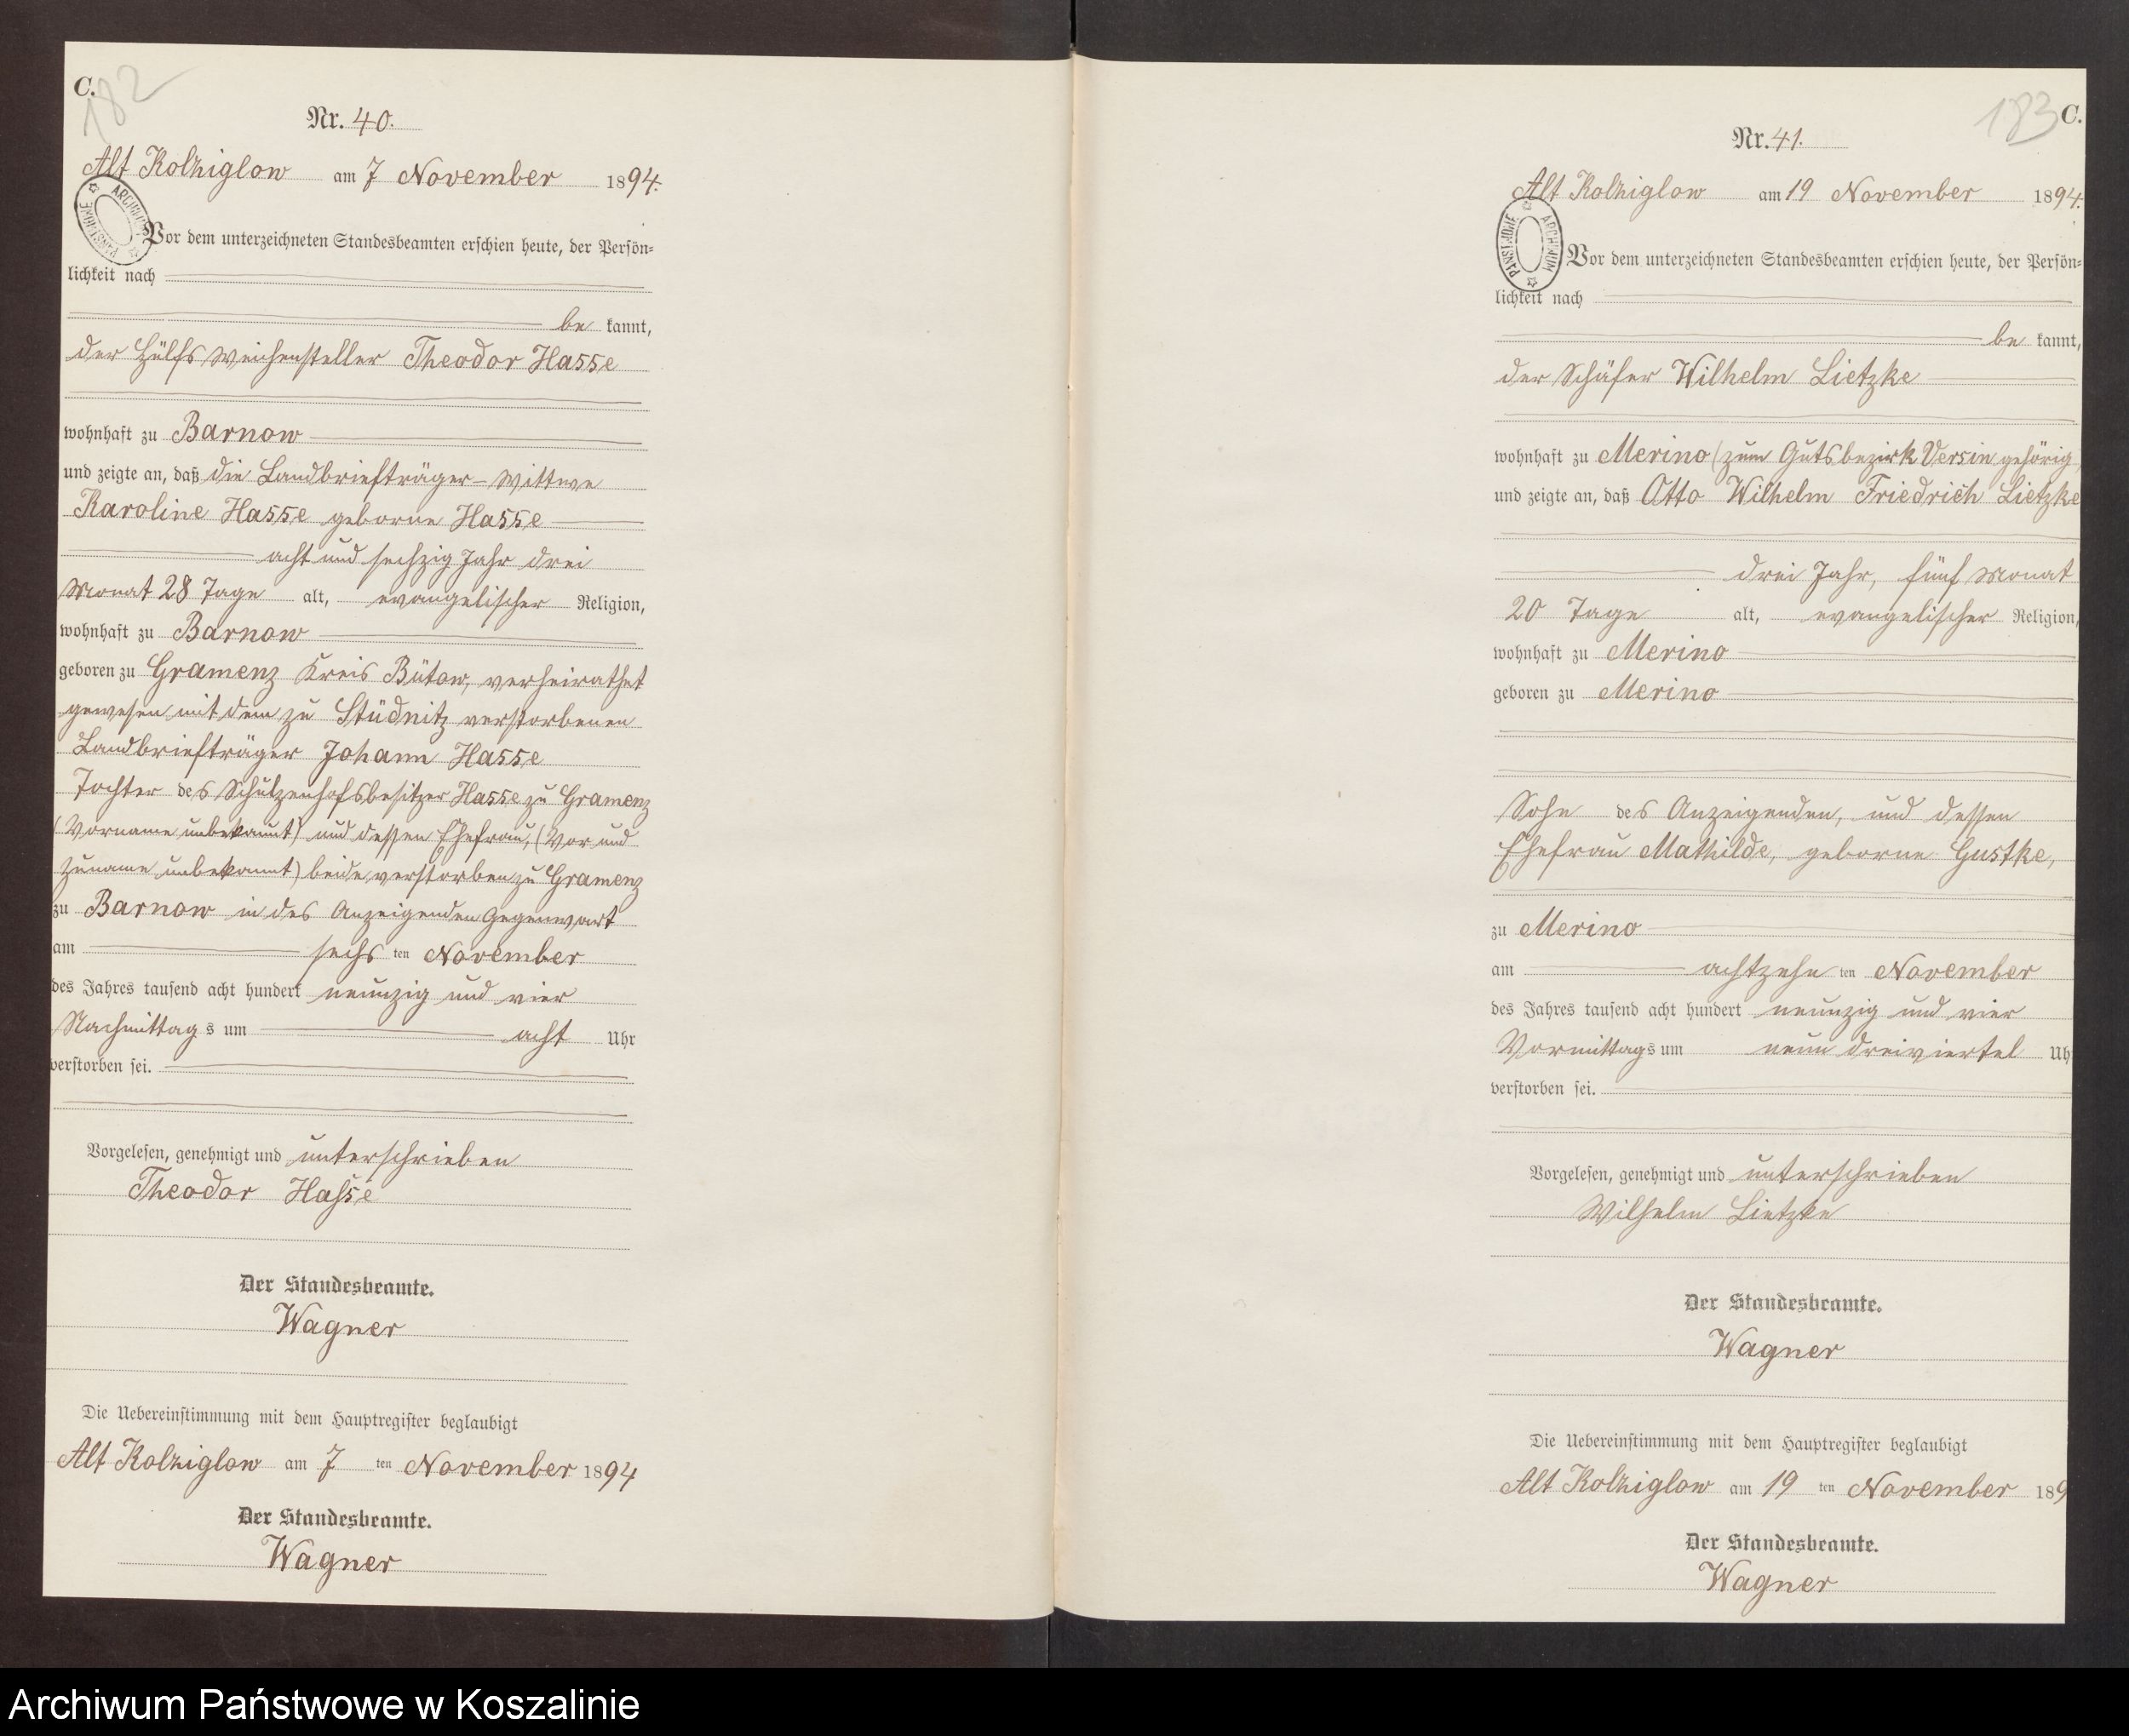 C.
182
Nr. 40.
Alt Kolziglow am 7 November 1894.
ARCHIWUM PAŃSTWOWE
Vor dem unterzeichneten Standesbeamten erschien heute, der Persön=
lichkeit nach
be kannt,
der Hülfsweichensteller Theodor Hasse
wohnhaft zu Barnow
und zeigte an, daß die Landbriefträger-Wittwe
Karoline Hasse geborne Hasse
acht und sechzig Jahr drei
Monat 28 Tage alt, evangelischer Religion,
wohnhaft zu Barnow
geboren zu Gramenz Kreis Bütow, verheirathet
gewesen mit dem zu Stüdnitz verstorbenen
Landbriefträger Johann Hasse
Tochter des Schulzenhofsbesitzer Hasse zu Gramenz
(Vorname unbekannt) und dessen Ehefrau, (Vor und
Zuname unbekannt) beide verstorben zu Gramenz
zu Barnow in des Anzeigenden Gegenwart
am sechs ten November
des Jahres tausend acht hundert neunzig und vier
Nachmittags um acht Uhr
verstorben sei.
Vorgelesen, genehmigt und unterschrieben
Theodor Hasse
Der Standesbeamte.
Wagner
Die Uebereinstimmung mit dem Hauptregister beglaubigt
Alt Kolziglow am 7 ten November 1894
Der Standesbeamte.
Wagner
183
C.
Nr. 41.
Alt Kolziglow am 19 November 1894.
ARCHIWUM PAŃSTWOWE
Vor dem unterzeichneten Standesbeamten erschien heute, der Persön=
lichkeit nach
be kannt,
der Schäfer Wilhelm Lietzke
wohnhaft zu Merino (zum Gutsbezirk Versin gehörig
und zeigte an, daß Otto Wilhelm Friedrich Lietzke
drei Jahr, fünf Monat
20 Tage alt, evangelischer Religion,
wohnhaft zu Merino
geboren zu Merino
Sohn des Anzeigenden, und dessen
Ehefrau Mathilde, geborne Gustke,
zu Merino
am achtzehn ten November
des Jahres tausend acht hundert neunzig und vier
Vormittags um neun dreiviertel Uh
verstorben sei.
Vorgelesen, genehmigt und unterschrieben
Wilhelm Lietzke
Der Standesbeamte.
Wagner
Die Uebereinstimmung mit dem Hauptregister beglaubigt
Alt Kolziglow am 19 ten November 189
Der Standesbeamte.
Wagner
Archiwum Państwowe w Koszalinie